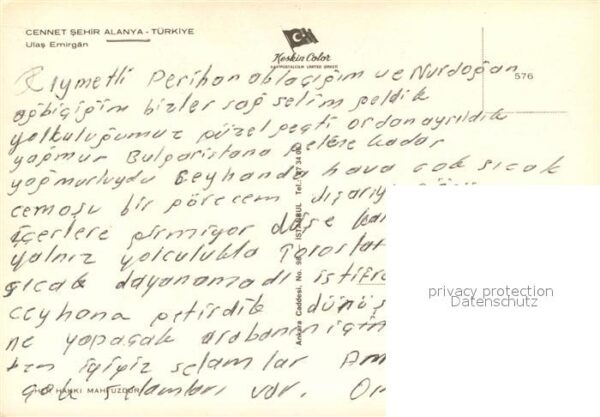 CENNET ŞEHİR ALANYA - TÜRKİYE
Ulaş Emirgân
Keskin Color
KARTPOSTALCILIK LİMİTED ŞİRKETİ
576
Kıymetli Perihan ablacığım ve Nurdoğan
ağbiciğim bizler sağ selim geldik
yolculuğumuz güzel geçti ordan ayrıldık
yağmur Bulgaristana gelene kadar
yağmurluydu Ceyhanda hava çok sıcak
bir görecem dışarıy
içerlere girmiyor
yalnız yolculukla Toroslar
sıcak dayanamadı istifra
ceyhana getirdik dönüş
ne yapacak arabanın için
ben iyiyiz selamlar
çok selamları var.
Ankara Caddesi. No. 98 İSTANBUL Tel.
HER HAKKI MAHFUZDUR
privacy protection
Datenschutz